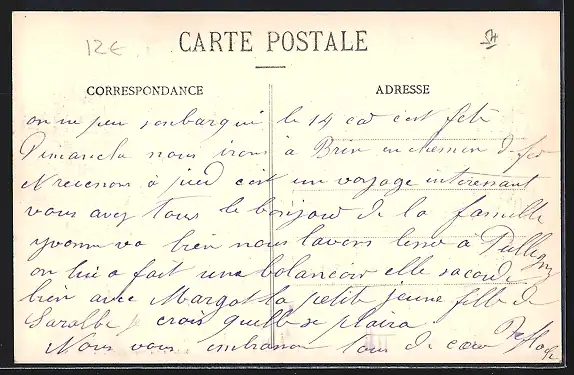 12€
CARTE POSTALE
CORRESPONDANCE
ADRESSE
on ne peu senbarqui le 14 car cest fete
Dimanche nous irons à Brin en chemin d fer
et revenons à pied cest un voyage interessant
vous avez tous le bonjour de la famille
yvonne va bien nous lavons lesse à Pulligny
on lui a fait une balancoir elle sacorde
bien avec Margot la petite jeune fille de
Saralbe crois quelle se plaira
Nous vous embrasson tous de cœur